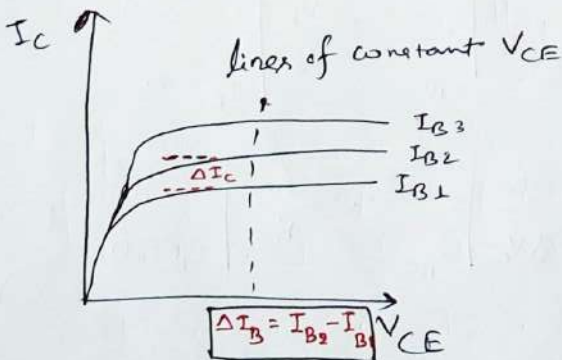 I_C
lines of constant V_CE
I_B3
I_B2
ΔI_C
I_B1
ΔI_B = I_B2 - I_B1
V_CE